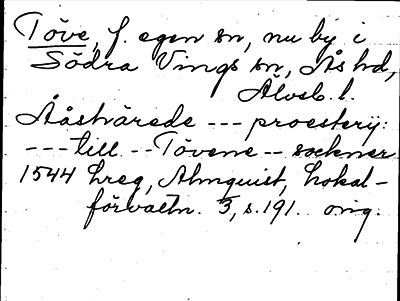 Töve, f. egen sn, nu by i
Södra Vings sn, Ås hd,
Älvsb. l.
Aåsträrede --- proestery:
--- till -- Tövene -- sockner
1544 hreg, Almquist, Lokal-
förvaltn. 3, s. 191. orig.